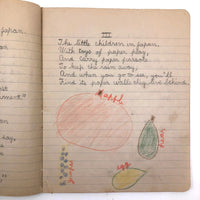 apan.
III
The little children in Japan,
With toys of paper play,
And carry paper parasols
To keep the rain away,
And when you go to see, you'll
Find its paper walls they live behind.
apple
pear
grapes